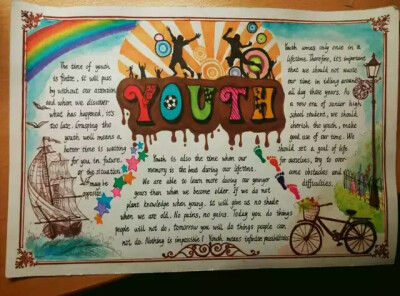 The time of youth
is finite, it will pass
by without our attension
and when we discover
what has happened, it's
too late. Grasping the
youth well means a
better time is waiting
for you in future,
or the situation
may be
opposite.
YOUTH
Youth comes only once in a
lifetime. Therefore, it's important
that we should not waste
our time in idling around
all day those years. As
a new era of senior high
school student, we should
cherish the youth, make
good use of our time. We
should set a goal of life
for ourselves, try to over-
come obstacles and
difficulties.
Youth is also the time when our
memory is the best during our lifetime.
We are able to learn more during our younger
years than when we become older. If we do not
plant knowledge when young, it will give us no shade
when we are old. No pains, no gains. Today you do things
people will not do, tomorrow you will do things people can
not do. Nothing is impossible! Youth means infinite possibilities.